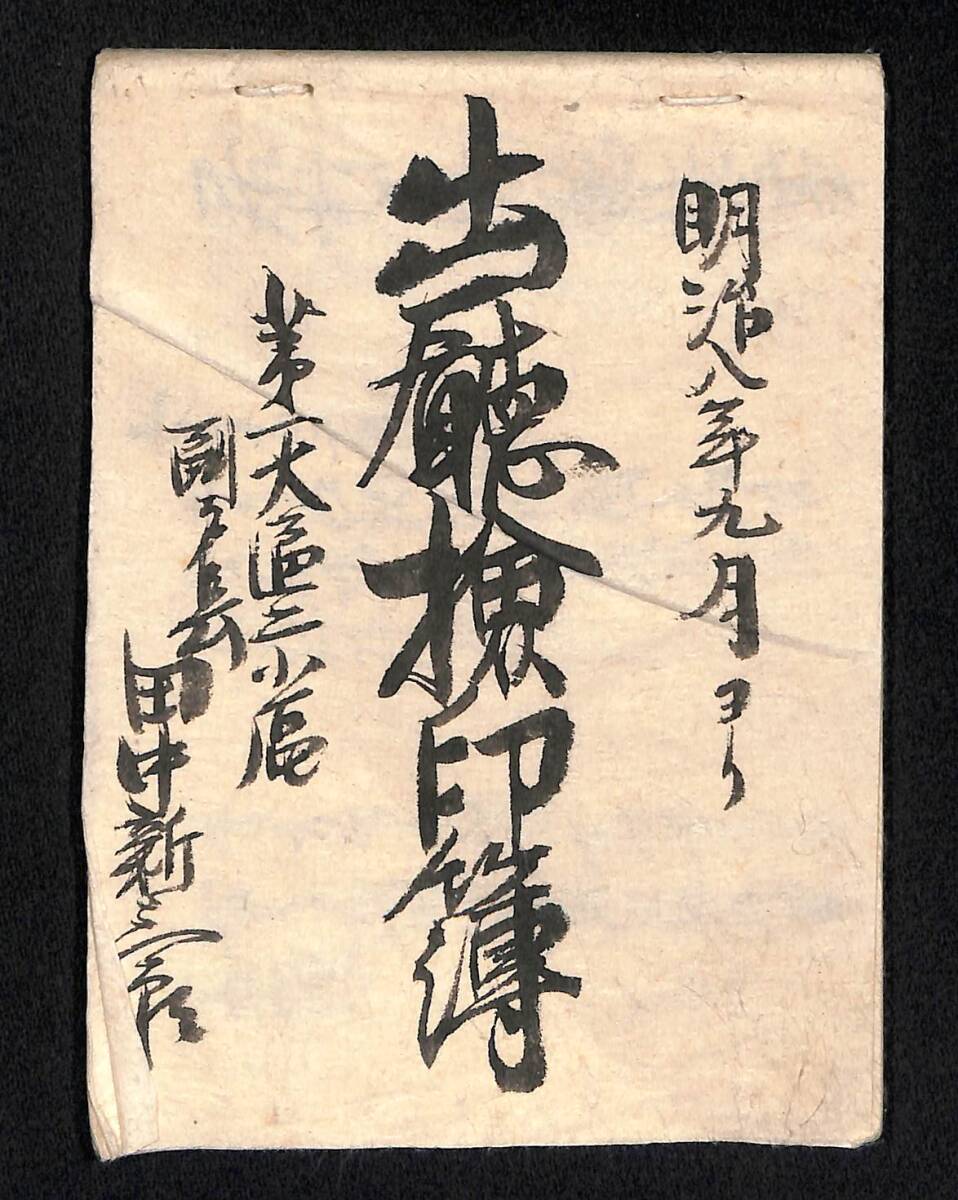 明治八年九月ヨリ
出廳検印簿
第大區三小區
副戸長
田中新三郎